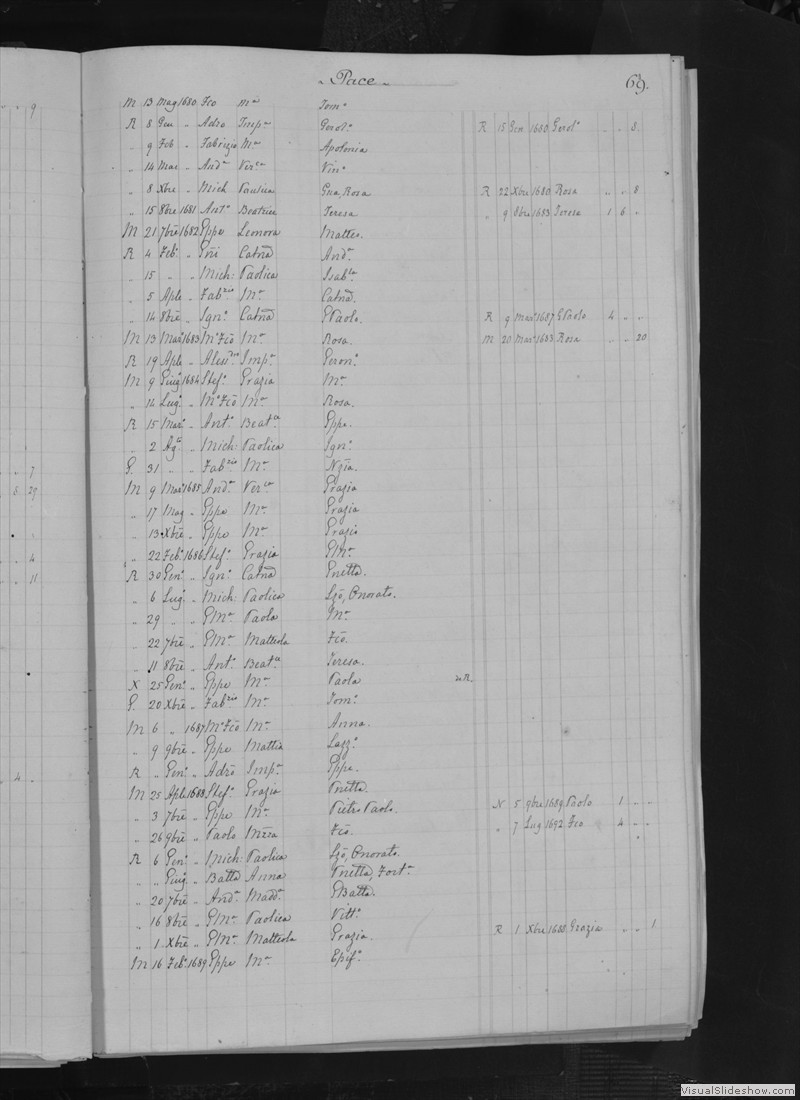 „ Pace „ 69.
M 13 Mag 1680 Fco Mª Tomª
R 8 Gen „ Adro Impª Gerolª R 15 Gen 1680 Gerolª „ „ 8.
„ 9 Feb „ Fabrizio Mª Apolonia
„ 14 Mar „ Andª Verca Vinª
„ 8 Xbre „ Mich Paulica Gna, Rosa R 22 Xbre 1680 Rosa „ „ 8
„ 15 8bre 1681 Antº Beatrice Teresa „ 9 8bre 1683 Teresa 1 6 „
M 21 7bre 1682 Gppe Lemora Matteo.
R 4 Feb. „ Catnª Andª
„ 15 „ „ Mich: Paolica Isabla
„ 5 Aple „ Fabzio Mª Catnª.
„ 14 8bre „ Ignº Catnª GPaolo. R 9 Marº 1687 GPaolo 4 „ „
M 13 Marº 1683 Mº Fcō Mª Rosa. M 20 Marº 1683 Rosa „ „ 20
R 19 Aple „ Aless.ro Impª Geronª
M 9 Giugº 1684 Stefº Grazia Mª
„ 14 Lugº „ Mº Fcō Mª Rosa.
R 15 Marº „ Antº Beatce Gppe.
„ 2 Agto „ Mich: Paolica Ignº
G. 31 „ „ Fabzio Mª Nzia.
M 9 Marº 1685 Andª Verca Grazia
„ 17 Mag „ Gppe Mª Grazia
„ 13 Xbre „ Gppe Mª Grazio
„ 22 Febº 1686 Stefº Grazia GMª
R 30 Genº „ Ignº Catnª Gnetta.
„ 6 Lugº „ Mich: Paolica Lzō, Onorato.
„ 29 „ „ GMª Paola Mª
„ 22 7bre „ GMª Matteola Fcō.
„ 11 8bre „ Antº Beatce Teresa.
X 25 Genº „ Gppe Mª Paola
G. 20 Xbre „ Fabzio Mª Tomº
M 6 „ 1687 Mº Fcō Mª Anna.
„ 9 9bre „ Gppe Mattia Lazzº
R „ Genº „ Adrō Impª Gppe.
M 25 Aple 1688 Stefº Grazia Vnetta.
„ 3 7bre „ Gppe Mª Pietro Paolo. N 5 9bre 1689 Paolo 1 „ „
„ 26 9bre „ Paolo Fcō. „ 7 Lug 1692 Fco 4 „ „
R 6 Genº „ Mich: Paolica Lzō, Onorato.
„ „ Giugº „ Batta Anna Vnetta, Fortª
„ 20 7bre „ Andª Maddª GBatta.
„ 16 8bre „ GMª Paolica Vittª
„ 1 Xbre „ GMª Matteola Grazia. R 1 Xbre 1688 Grazia „ „ 1
M 16 Febº 1689 Gppe Mª Epifª
VisualSlideshow.com